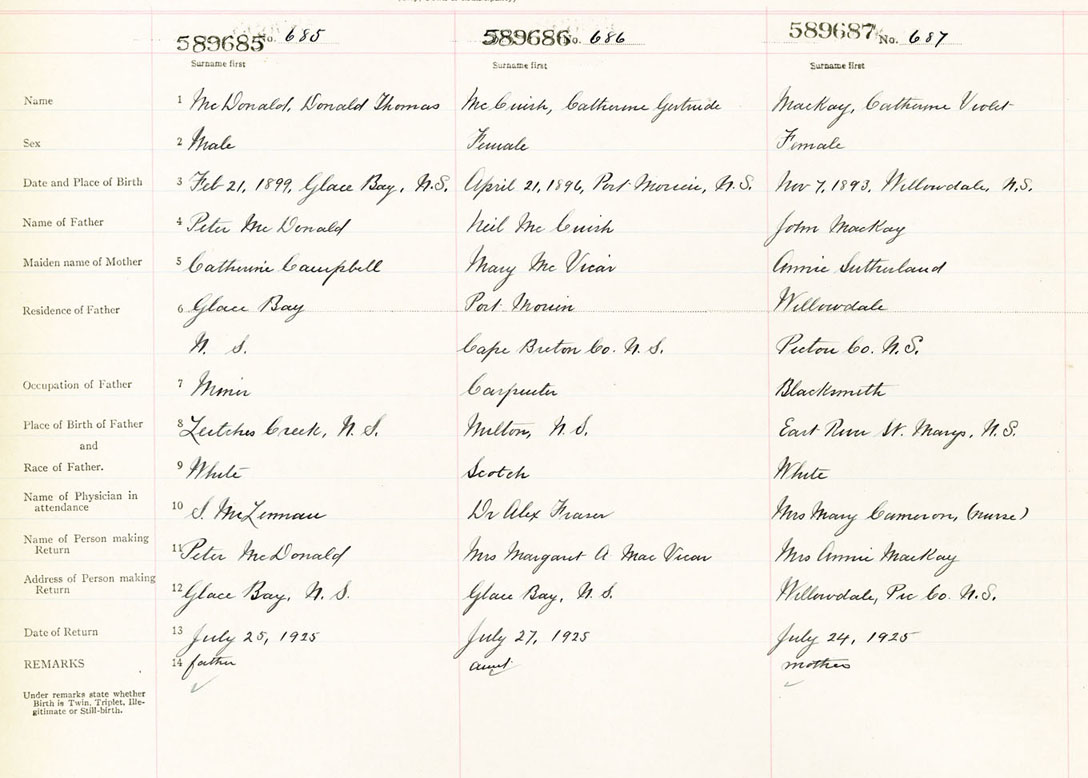 589685 No. 685 589686 No. 686 589687 No. 687
Surname first Surname first Surname first
Name 1 McDonald, Donald Thomas McCuish, Catherine Gertrude MacKay, Catherine Violet
Sex 2 Male Female Female
Date and Place of Birth 3 Feb 21, 1899, Glace Bay, N.S. April 21, 1896, Port Morien, N.S. Nov 7, 1893, Willowdale, N.S.
Name of Father 4 Peter McDonald Neil McCuish John MacKay
Maiden name of Mother 5 Catherine Campbell Mary McVicar Annie Sutherland
Residence of Father 6 Glace Bay Port Morien Willowdale
N. S. Cape Breton Co. N. S. Pictou Co. N.S.
Occupation of Father 7 Miner Carpenter Blacksmith
Place of Birth of Father 8 Leitches Creek, N. S. Milton, N. S. East River St. Marys, N.S.
and
Race of Father. 9 White Scotch White
Name of Physician in
attendance 10 S. McLennan Dr Alex Fraser Mrs Mary Cameron, (nurse)
Name of Person making
Return 11 Peter McDonald Mrs Margaret A MacVicar Mrs Annie MacKay
Address of Person making
Return 12 Glace Bay, N. S. Glace Bay, N. S. Willowdale, Pic Co. N.S.
Date of Return 13 July 25, 1925 July 27, 1925 July 24, 1925
REMARKS 14 father aunt mother
Under remarks state whether
Birth is Twin, Triplet, Ille-
gitimate or Still-birth.